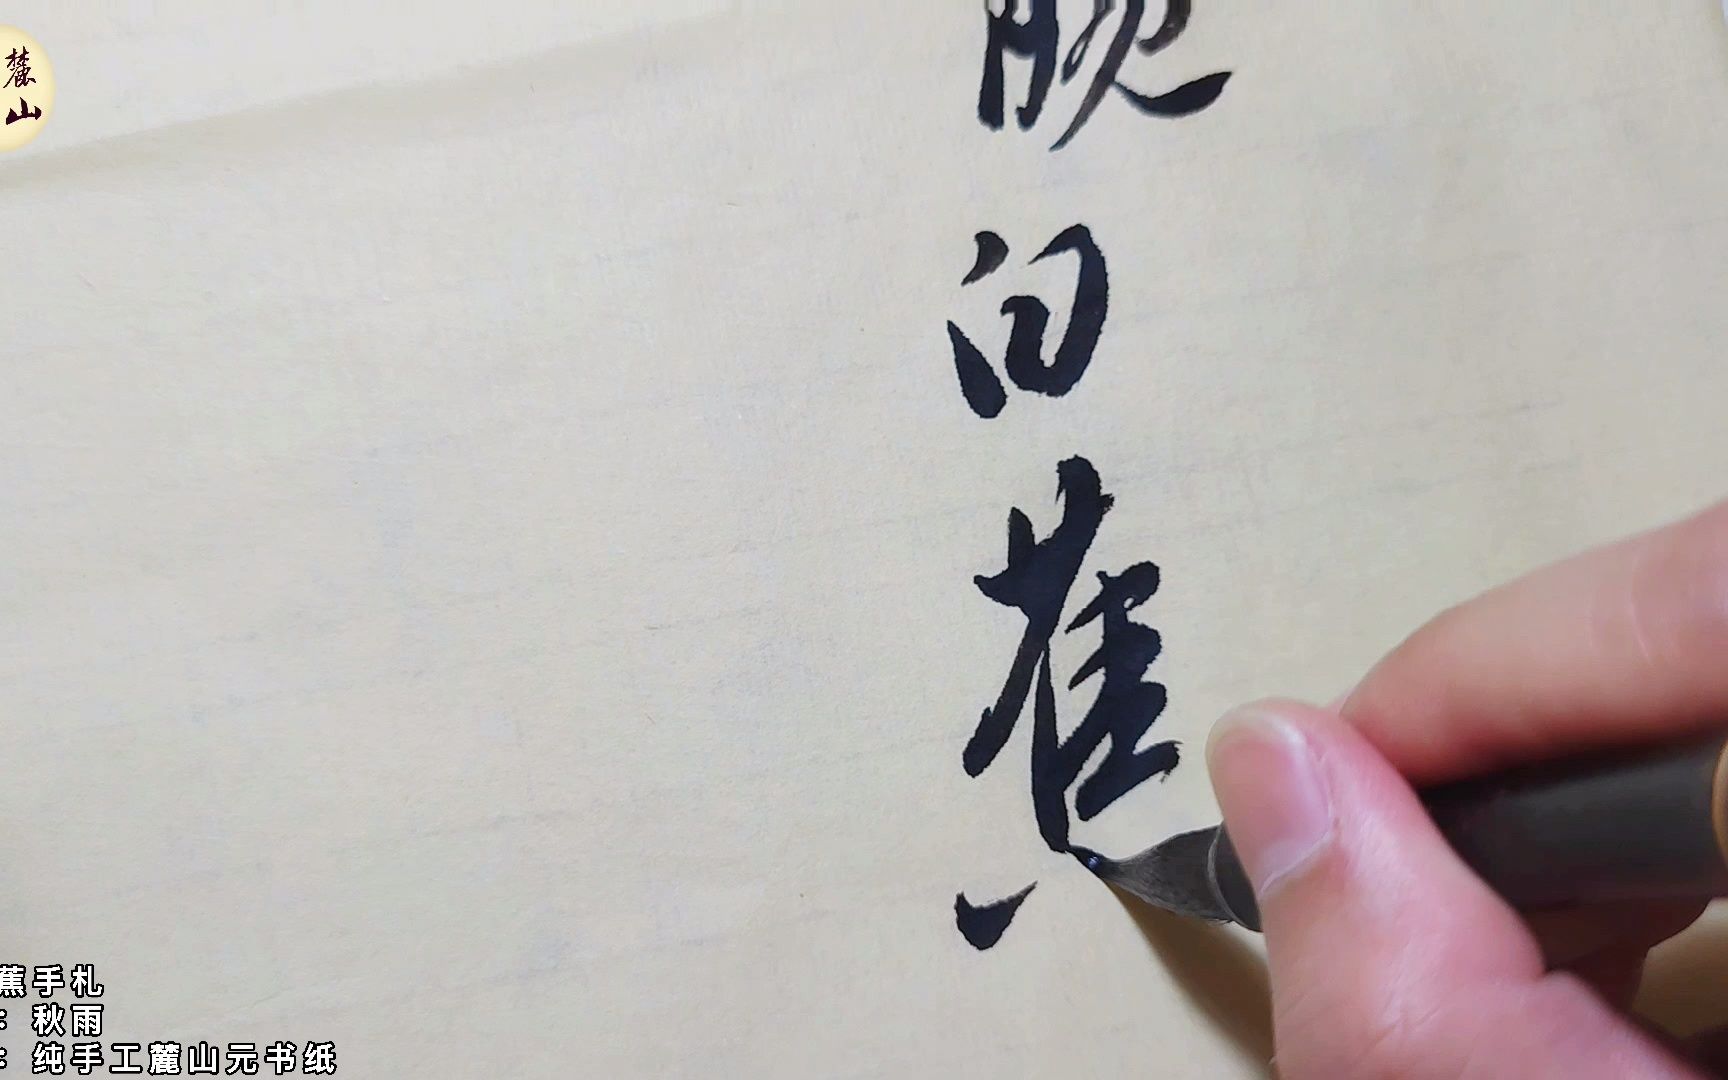 麓山
白
蕉
蕉手札
：秋雨
：纯手工麓山元书纸